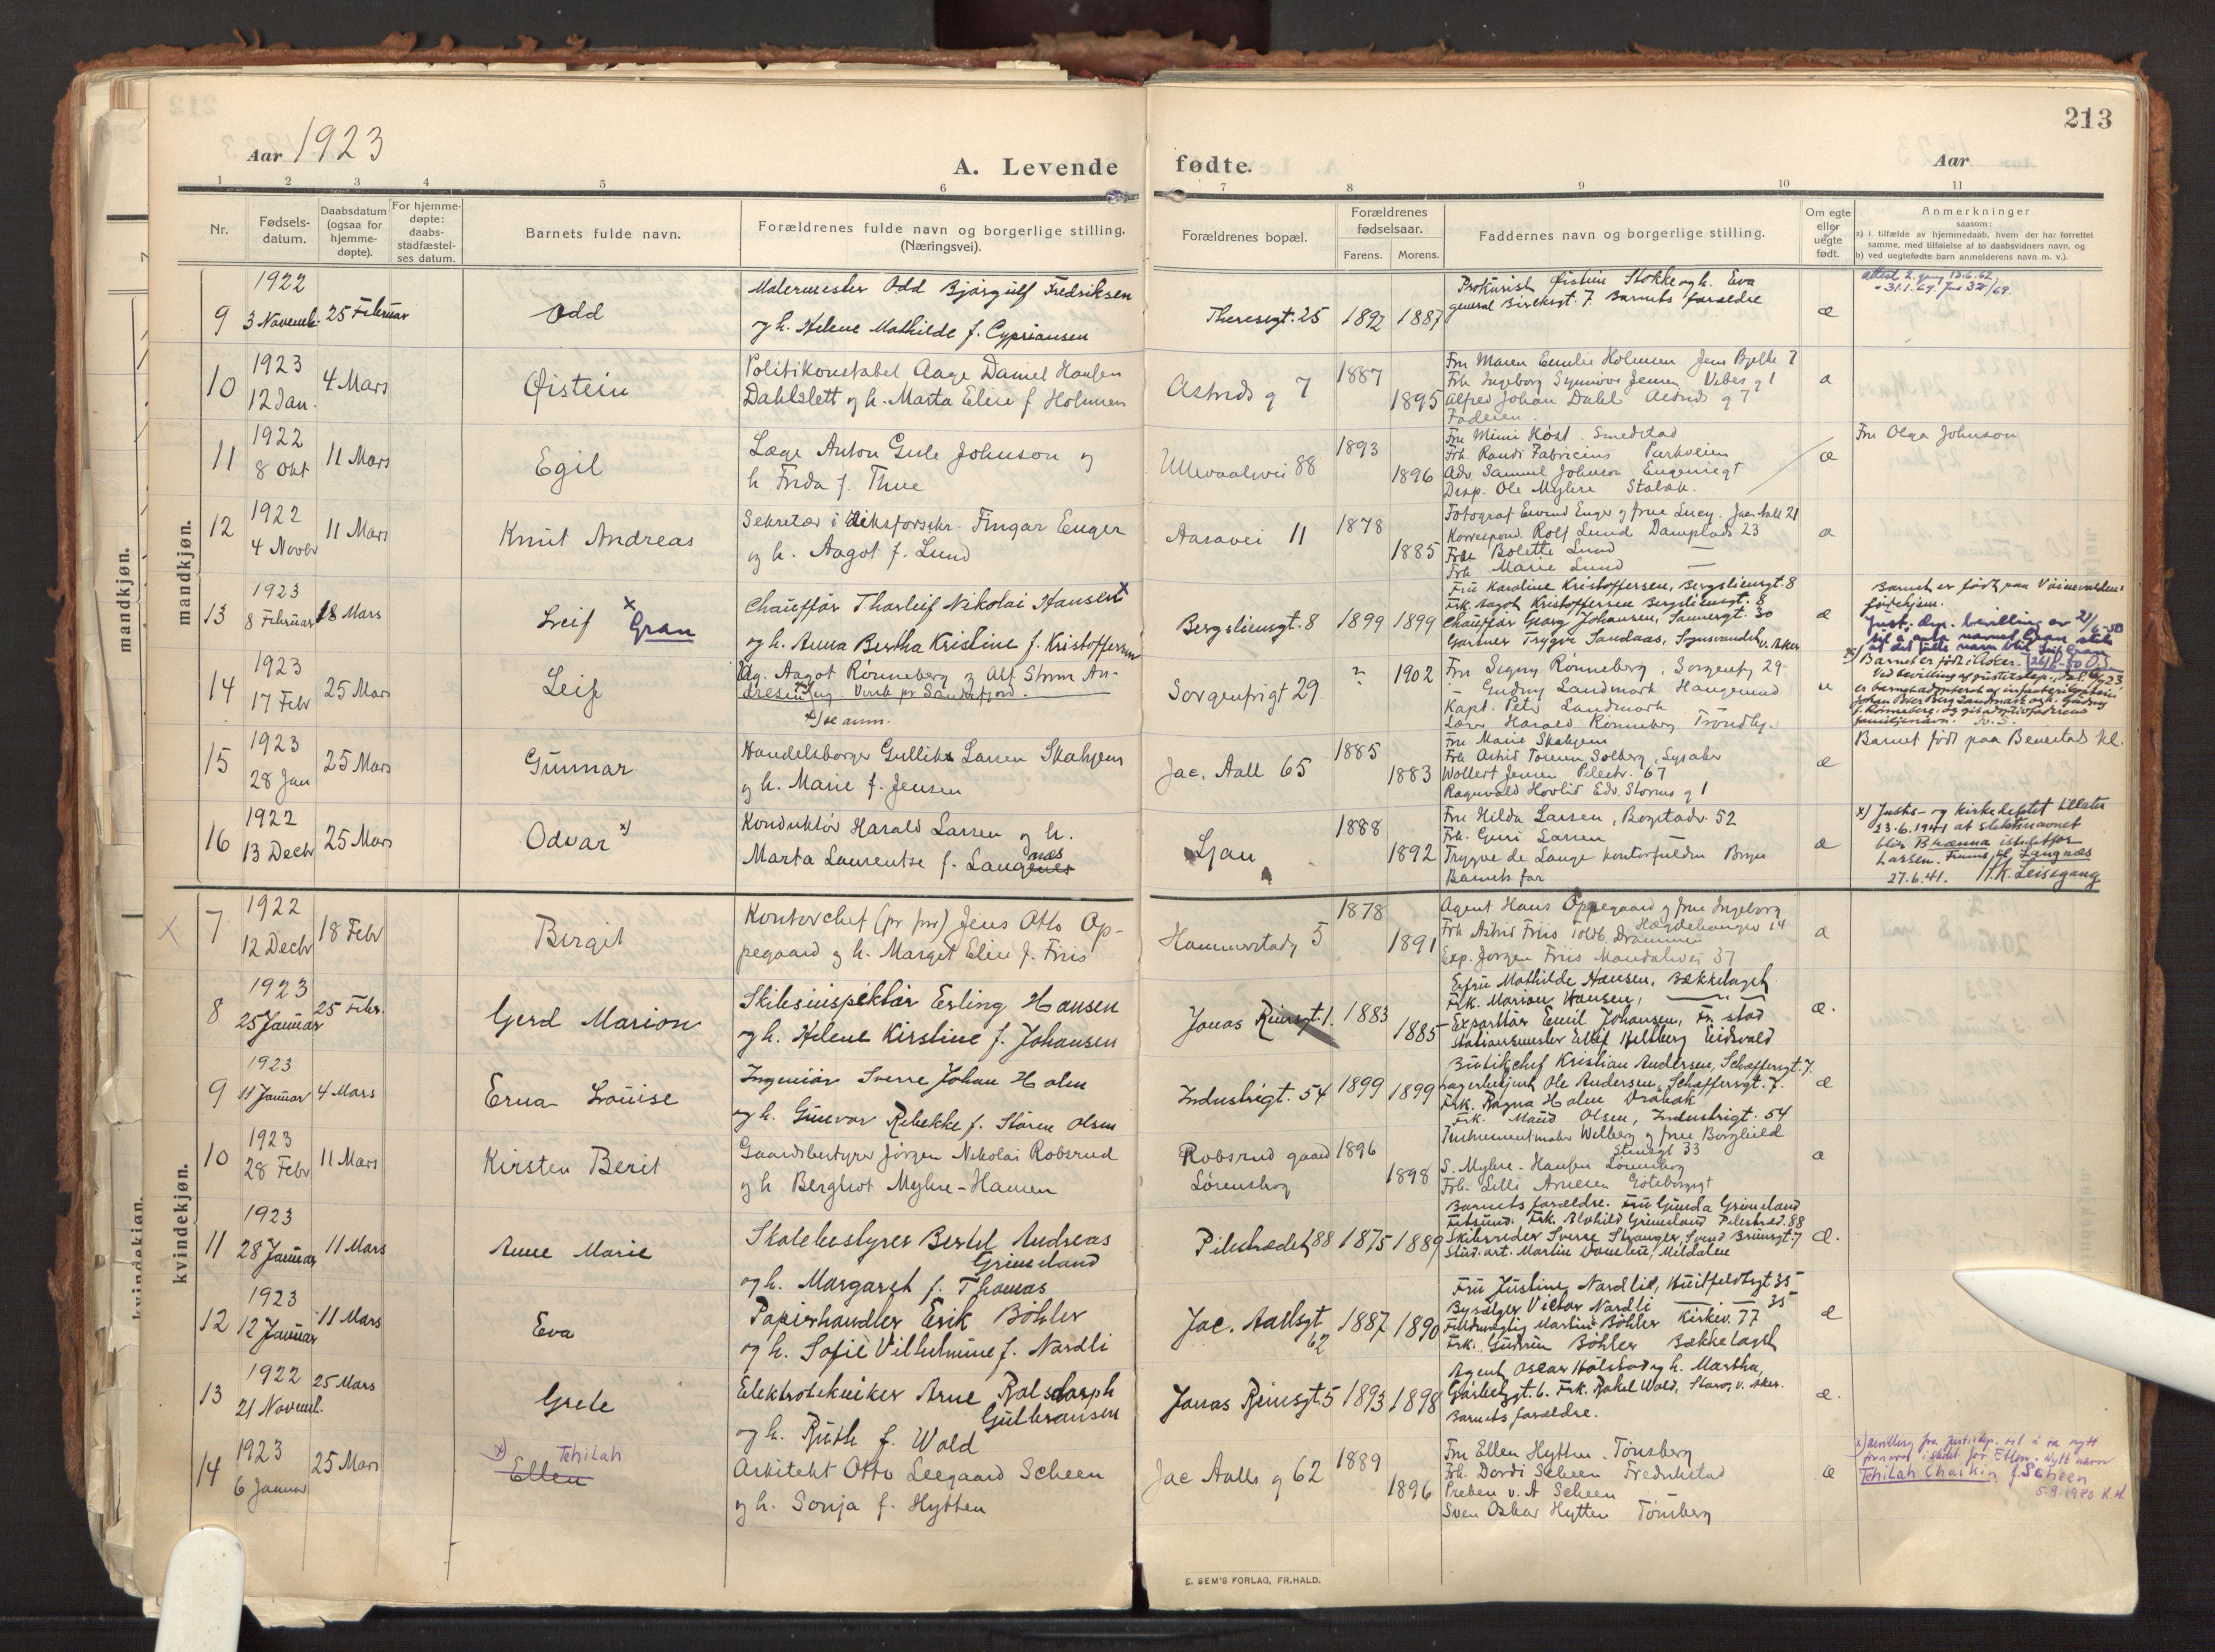 213
Aar 1923
A. Levende fødte.
Aar
1 2 3 4 5 6 7 8 9 10 11
Nr.
Fødsels-
datum.
Daabsdatum
(ogsaa for
hjemme-
døpte).
For hjemme-
døpte:
daabs-
stadfæstel-
ses datum.
Barnets fulde navn.
Forældrenes fulde navn og borgerlige stilling.
(Næringsvei).
Forældrenes bopæl.
Forældrenes
fødselsaar.
Farens. Morens.
Faddernes navn og borgerlige stilling.
Om egte
eller
uegte
født.
Anmerkninger
saasom:
a) i tilfælde av hjemmedaab, hvem der har forrettet
samme, med tilføielse af to daabsvidners navn, og
b) ved uegtefødte barn anmelderens navn m. v.).
mandkjøn.
mandkjøn.
9
1922
3 Novemb.
25 Februar
Odd
Malermester Odd Bjørgulf Fredriksen
og h. Helene Mathilde f. Cypriansen
Theresegt. 25
1892 1887
Prokurist Øistein Stokke og h. Eva
general Birchsgt. 7. Barnets forældre
æ
10
1923
12 Jan.
4 Mars
Øistein
Politikonstabel Aage Daniel Hansen
Dahlslett og h. Marta Eline f Holmen
Astrids g 7
1887
1895
Fru Maren Emilie Holmen Jens Bjelke 7
Frk Ingeborg Synnøve Jensen Vibes g 1
Alfred Johan Dahl Astrids g 7
Faderen
æ
11
1922
8 Okt
11 Mars
Egil
Læge Anton Gule Johnson og
h Frida f. Thue
Ullevaalsvei 88
1893
1896
Fru Mimi Høst. Smedstad
Frk Randi Fabricius Parkveien
Adv. Samuel Johnson Eugeniegt
Disp. Ole Myhre Stabæk.
æ
Fru Olga Johnson
12
1922
4 Novbr
11 Mars
Knut Andreas
Sekretær i Riksforsikr. Fingar Enger
og h. Aagot f. Lund
Aasavei 11
1878
1885
Fotograf Eivind Enger og frue Lucy. Jac Aall 21
Korrespond. Rolf Lund Damplads 23
Frk Bolette Lund —
Frk. Marie Lund —
æ
13
1923
8 Februar
18 Mars
Leif x Gran
Chauffør Thorleif Nikolai Hansen x
og h. Anna Bertha Kristine f. Kristoffersen
Bergsliensgt. 8
1899 1899
Fru Karoline Kristoffersen, Bergsliensgt. 8
Frk. Aagot Kristoffersen Bergsliensgt. 8
Chauffør Georg Johansen, Sannergt. 30
Gartner Trygve Sandaas, Sognsvandet v. Aker
æ
Barnet er født paa
fødehjem.
Just. dep. bevilling av 21/6-50
til å anta navnet Gran slik
at det fulle navn blir Leif Gran
26/6-50 O.S.
14
1923
17 Febr
25 Mars
Leif
Ug. Aagot Rønneberg og Alf Strøm An-
dresen
x) se anm.
Sorgenfrigt 29
1902
Fru Signy Rønneberg, Sorgenfrig 29
— Gudny Landmark Haugesund
Kapt. Peter Landmark
Lærer Harald Rønneberg Trondhj.
u
x) Barnet er født i Asker.
15
1923
28 Jan
25 Mars
Gunnar
Handelsborger Gulliks Larsen Skahjem
og h. Marie f. Jensen
Jac. Aall 65
1885
1883
Fru Marie Skahjem
Frk Astrid Tomine Solberg, Lysaker
Wollert Jensen Pilestr. 67
Ragnvald Hovlid Edv. Storms g 1
æ
Barnet født paa Benestads kl.
16
1922
13 Decbr
25 Mars
Odvar x)
Konduktør Harald Larsen og h.
Marta Laurentse f. Langenes næs
Ljan
1888
1892
Fru Hilda Larsen, Bogstadv. 52
Frk. Guri Larsen
Trygve de Lange kontorfuldm Bryn
Barnets far
æ
x) Justis- og kirkedeptet tillater
23.6.1941 at slektsnavnet
blir Brænna istedetfor
Larsen. Langnæs
27.6.41. H.K. Leisegang
kvindekjøn.
kvindekjøn.
x 7
1922
12 Decbr
18 Febr
Birgit
Kontorchef (pr pr) Jens Otto Op-
pegaard og h. Marget Eline f. Friis
Hammerstadg 5
1878
1891
Agent Hans Oppegaard og frue Ingeborg
Hægdehaugen 14
Frk Astrid Friis Toldb. Drammen
Exp. Jørgen Friis Mandalsvei 37
æ
8
1923
25 Januar
25 Febr.
Gerd Marion
Skibsinspektør Erling Hansen
og h. Helene Kirstine f. Johansen
Jonas Reinsgt. 1.
1883
1885
Enkefru Mathilde Hansen, Bækkelaget
Frk. Marion Hansen, —
Exportør Emil Johansen, Fr. stad
Stationsmester Ellef Hellberg Eidsvold
æ.
9
1923
11 Januar
4 Mars
Erna Louise
Ingeniør Sverre Johan Holm
og h. Gunvor Rebekke f. Støren Olsen
Industrigt. 54
1899 1899
Butikchef Kristian Andersen, Schæffersgt. 7.
Lagerbetjent Ole Andersen, Schæffersgt. 7.
Frk. Ragna Holm Drøbak
Frk. Maud Olsen, Industrigt. 54
æ
10
1923
28 Febr
11 Mars
Kirsten Berit
Gaardsbestyrer Jørgen Nikolai Robsrud
og h Bergliot Myhre-Hansen
Robsrud gaard
Lørenskog
1896
1898
Instrumentmaker Wilberg og frue Borghild
Stensgt 33
S. Myhre-Hansen Lørenskog
Frk. Lilli Arnesen Göteborggt
æ
11
1923
28 Januar
11 Mars
Anne Marie
Skolebestyrer Bertel Andreas
Grimeland
og h. Margaret f. Thomas
Pilestrædet 88
1875 1889
Barnets forældre. Fru Gunda Grimeland
Fetsund. Frk. Alvhild Grimeland Pilestræd. 88
Skibsreder Sverre Stranger, Svend Brunsgt. 7
Stud. art. Martin
æ.
12
1923
12 Januar
11 Mars
Eva
Papirhandler Erik Böhler
og h. Sofie Vilhelmine f. Nardli
Jac. Aallsgt
62
1887 1890
Fru Justine Nardli, Huitfeldtsgt 35
Bysælger Victor Nardli — 35
Fuldmægtig Martin Böhler Kirkev. 77
Frk. Gudrun Böhler Bækkelaget
æ
13
1922
21 Novemb.
25 Mars
Grete
Elektrotekniker Arne Rolsdorph
Gulbransen
og h. Ruth f. Wold
Jonas Reinsgt. 5
1893 1898
Agent Oscar Hølstad og h. Martha,
Gørbitzgt. 6. Frk. Rakel Wold, Storo, v. Aker.
Barnets forældre.
æ.
14
1923
6 Januar
25 Mars
x) Tehilah
Ellen
Arkitekt Otto Leegaard Scheen
og h. Sonja f. Hytten
Jac Aalls g 62
1889
1896
Fru Ellen Hytten. Tønsberg
Frk. Dordi Scheen Fredrikstad
Preben v. A Scheen
Sven Oskar Hytten Tønsberg
æ
x) Bevilling fra Justisdep. til å ta nytt
fornavn i stedet for Ellen. Nytt navn
Tehilah Chaikin f. Scheen
5.9.1980 K.H.
E. SEM'S FORLAG, FR.HALD.